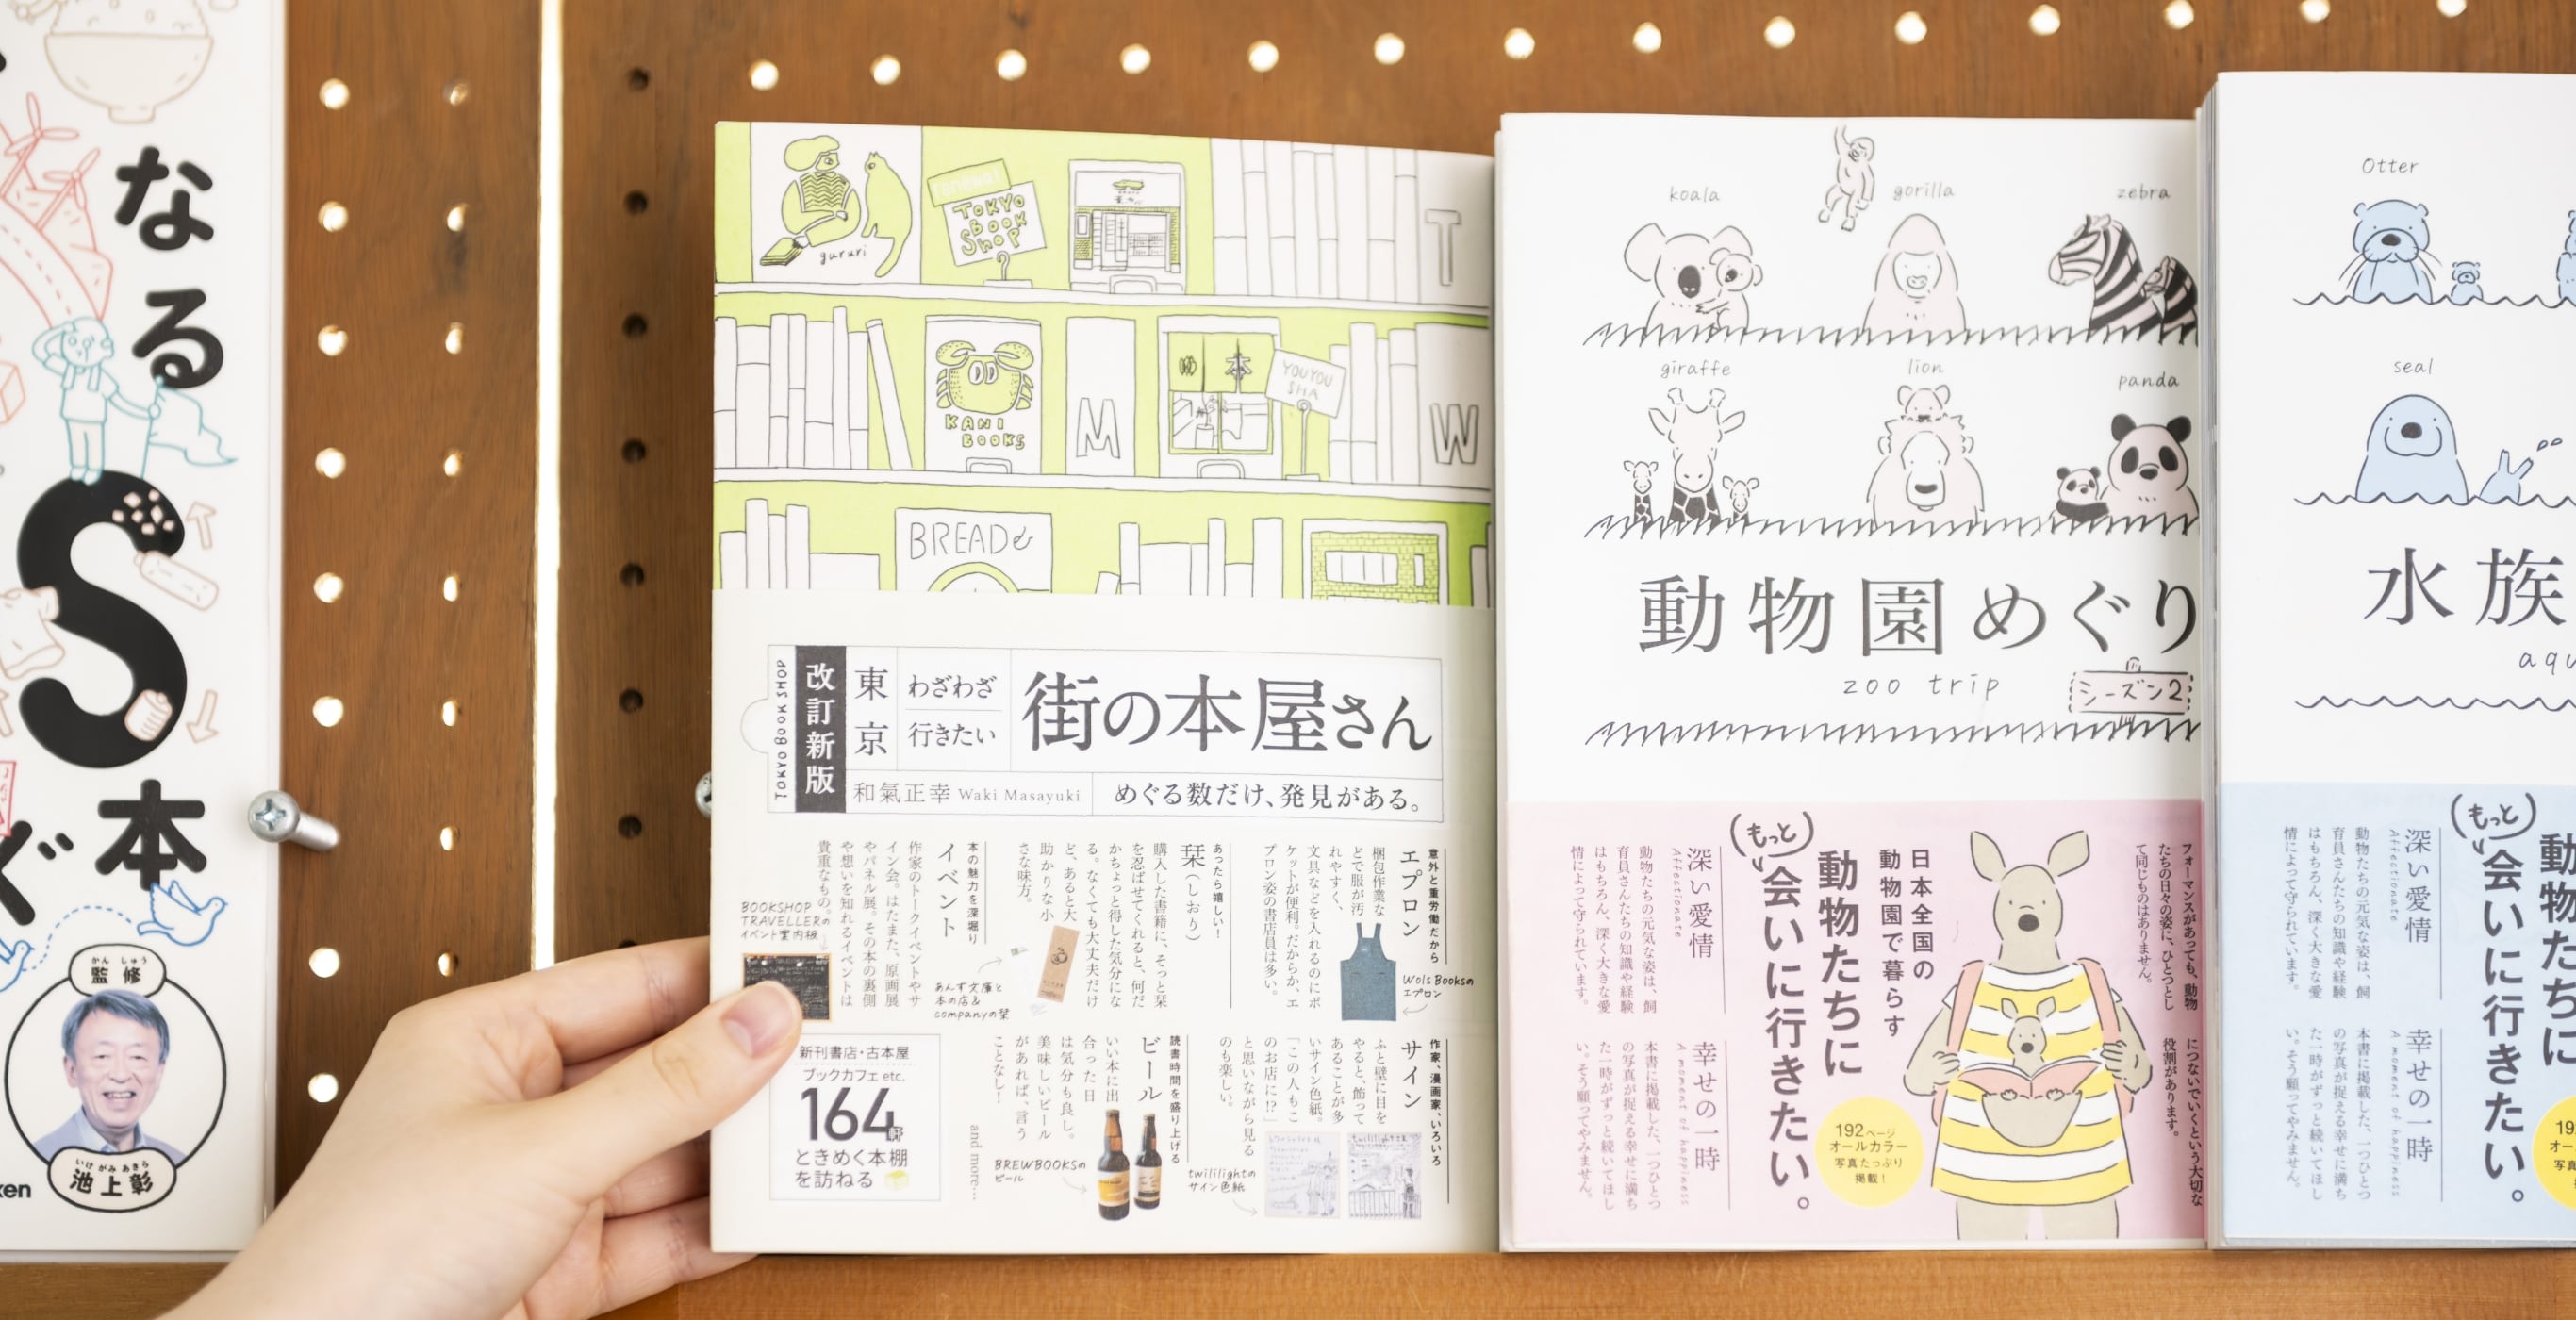 なる
S
本
ぐ
かん しゅう
監修
いけ がみ あきら
池上彰
gururi
renewal
TOKYO
BOOK
SHOP
T
KANI
BOOKS
M
本
YOUYOU
SHA
W
BREAD&
TOKYO BOOK SHOP
改訂新版
東京
わざわざ
行きたい
街の本屋さん
和氣正幸 Waki Masayuki
めぐる数だけ、発見がある。
意外と重労働だから
エプロン
梱包作業な
どで服が汚
れやすく、
文具などを入れるのにポ
ケットが便利。だからか、エ
プロン姿の書店員は多い。
Wols Booksの
エプロン
あったら嬉しい!
栞(しおり)
購入した書籍に、そっと栞
を忍ばせてくれると、何だ
かちょっと得した気分にな
る。なくても大丈夫だけ
ど、あると大
助かりな小
さな味方。
あんず文庫と
本の店&
companyの栞
本の魅力を深堀り
イベント
作家のトークイベントやサ
イン会。はたまた、原画展
やパネル展。その本の裏側
や想いを知れるイベントは
貴重なもの。
BOOKSHOP
TRAVELLERの
イベント案内板
作家、漫画家、いろいろ
サイン
ふと壁に目を
やると、飾って
あることが多
いサイン色紙。
「この人もこ
のお店に!?」
と思いながら見る
のも楽しい。
twililightの
サイン色紙
読書時間を盛り上げる
ビール
いい本に出
合った日
は気分も良し。
美味しいビール
があれば、言う
ことなし!
BREWBOOKSの
ビール
and more…
新刊書店・古本屋
ブックカフェ etc.
164軒
ときめく本棚
を訪ねる
koala
gorilla
zebra
giraffe
lion
panda
動物園めぐり
zoo trip
シーズン2
フォーマンスがあっても、動物
たちの日々の姿に、ひとつとし
て同じものはありません。
につないでいくという大切な
役割があります。
日本全国の
動物園で暮らす
動物たちに
(もっと)
会いに行きたい。
深い愛情
Affectionate
動物たちの元気な姿は、飼
育員さんたちの知識や経験
はもちろん、深く大きな愛
情によって守られています。
幸せの一時
A moment of happiness
本書に掲載した、一つひとつ
の写真が捉える幸せに満ち
た一時がずっと続いてほし
い。そう願ってやみません。
192ページ
オールカラー
写真たっぷり
掲載!
Otter
seal
水族
動物たちに
(もっと)
会いに行きたい。
深い愛情
Affectionate
動物たちの元気な姿は、飼
育員さんたちの知識や経験
はもちろん、深く大きな愛
情によって守られています。
幸せの一時
A moment of happiness
本書に掲載した、一つひとつ
の写真が捉える幸せに満ち
た一時がずっと続いてほし
い。そう願ってやみません。